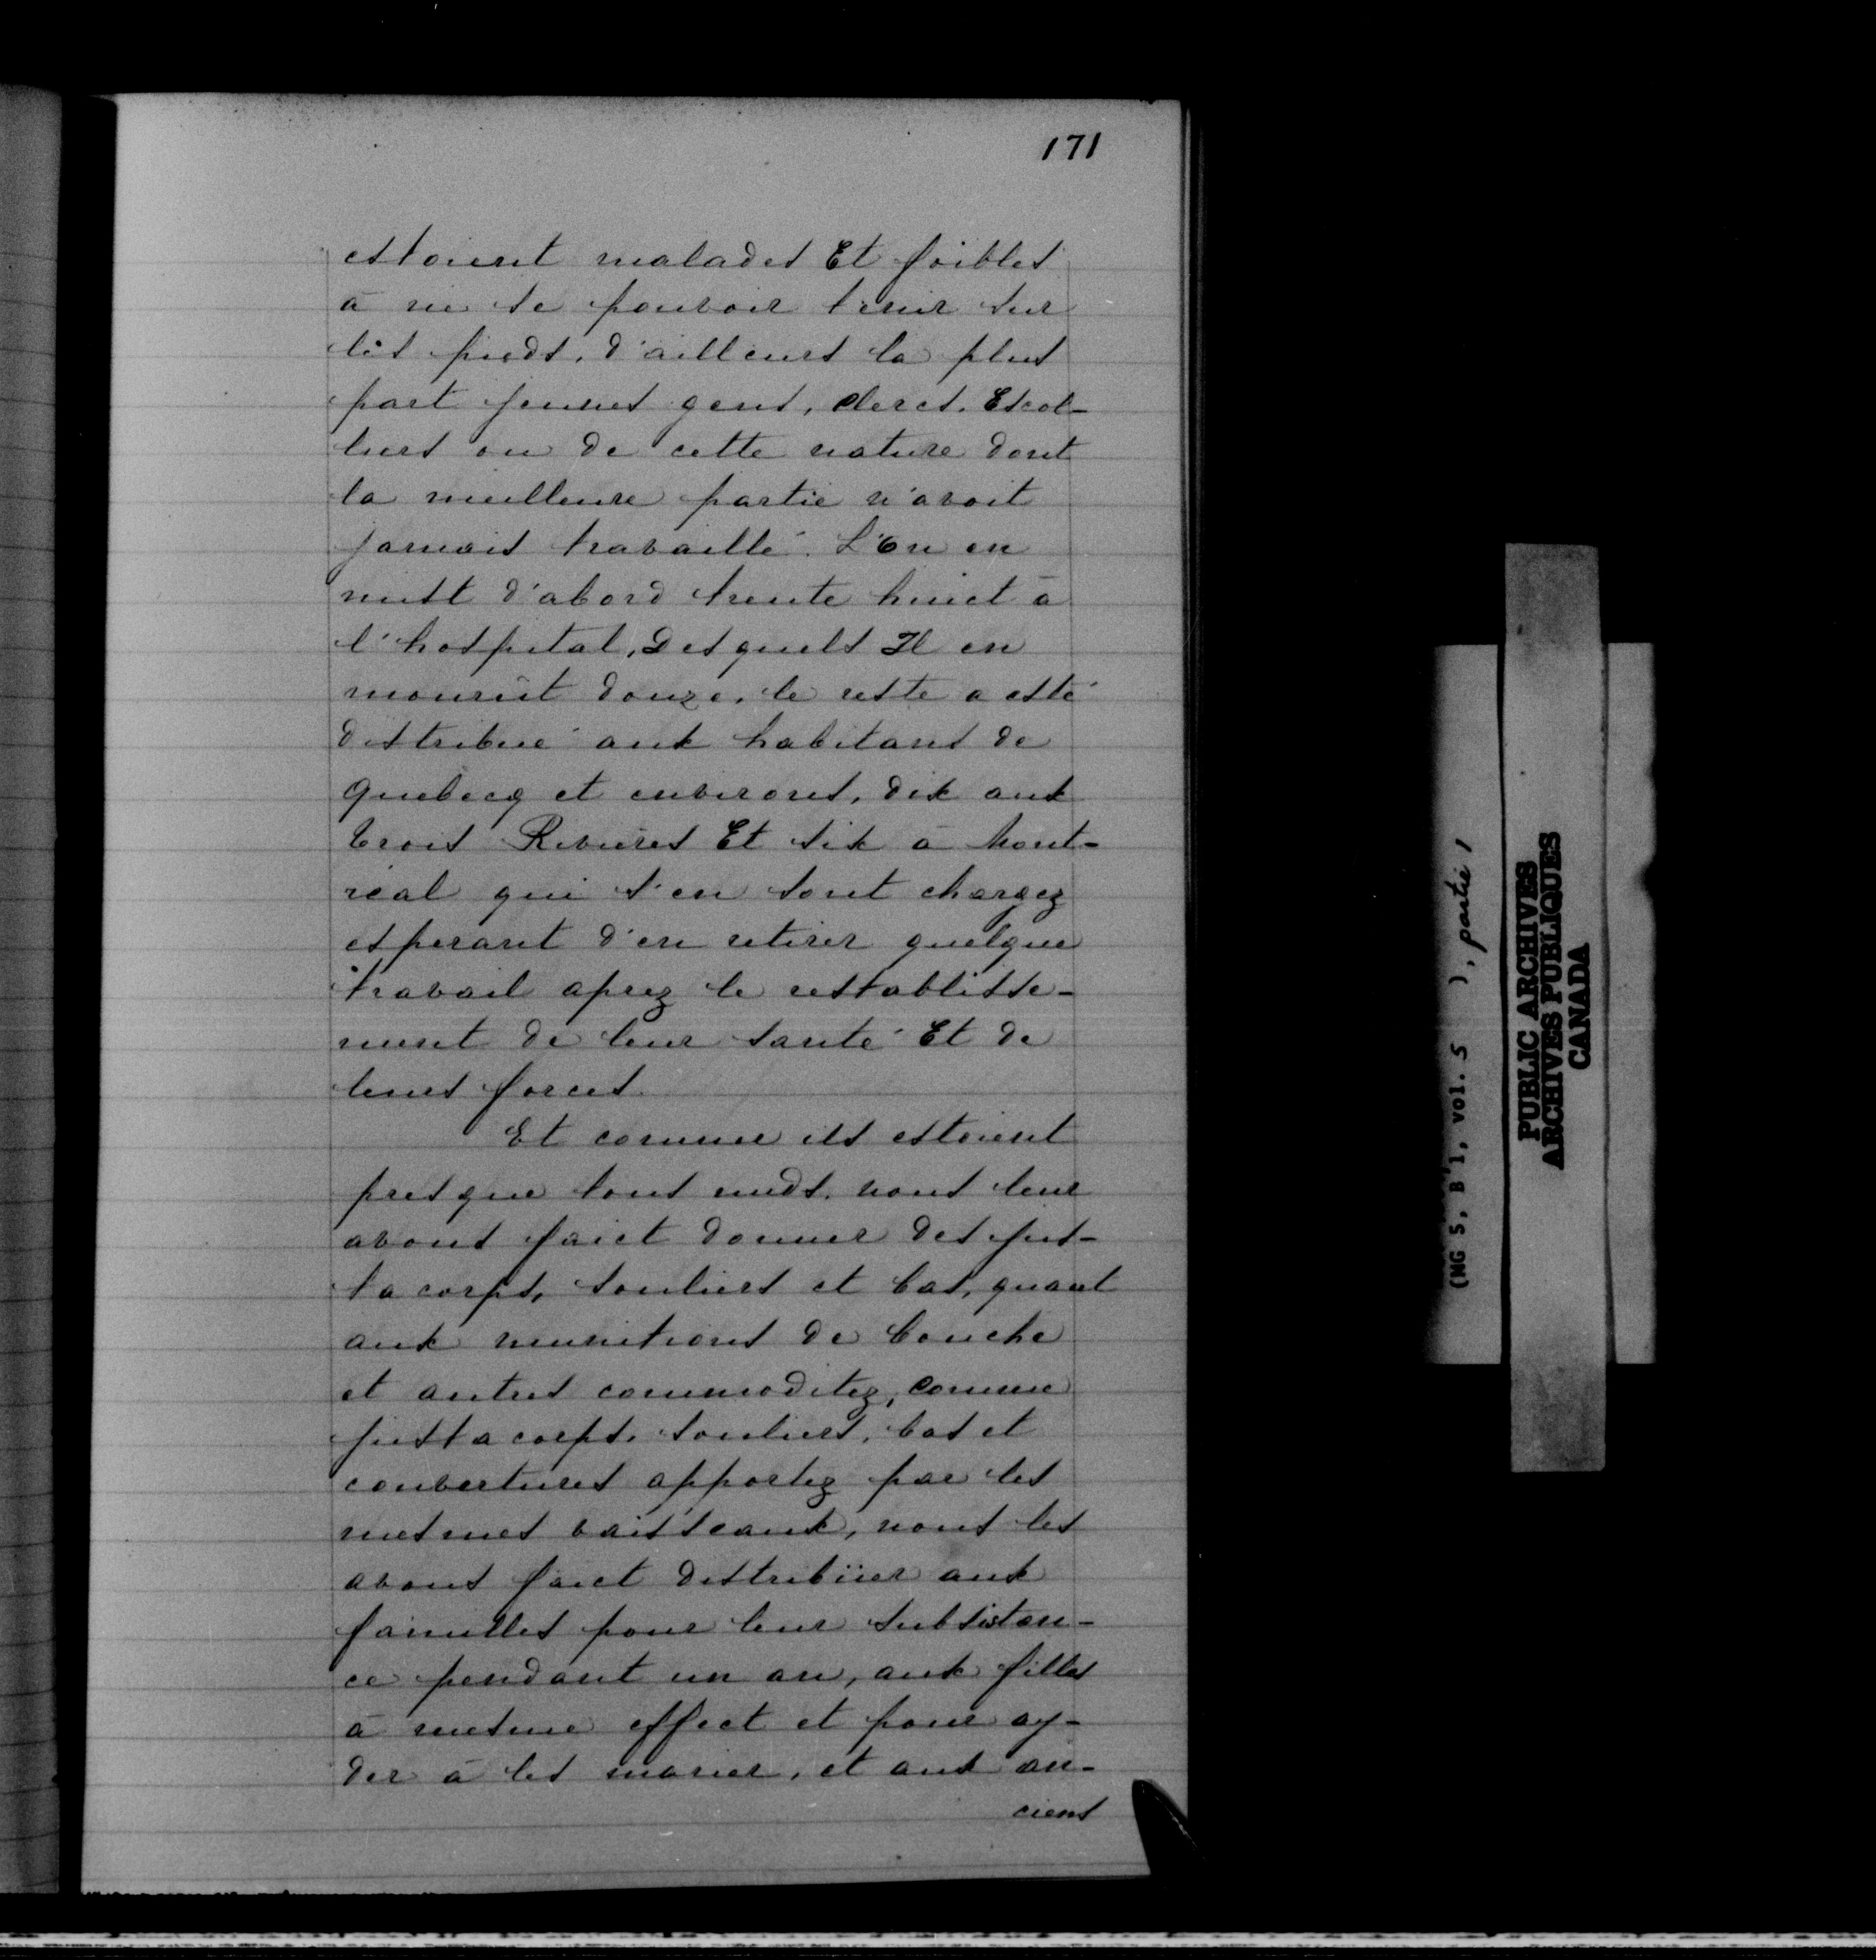 171
estoient malades Et foibles
à ne se pouvoir tenir sur
les pieds, d'ailleurs la plus
part jeunes gens, clercs, Escol-
liers ou de cette nature dont
la meilleure partie n'avoit
jamais travaillé. L'On en
mist d'abord trente huict à
l'hospital, Desquels Il en
mourût douze, le reste a esté
distribué aux habitans de
Quebecq et environs, dix aux
trois Rivieres Et six à Mont-
réal qui s'en sont chargez
esperant d'en retirer quelque
travail aprez le restablisse-
ment de leur santé Et de
leurs forces.
Et comme ils estoient
presque tous nuds, nous leur
avons faict donner des jus-
ta corps, souliers et bas, quant
aux munitions de bouche
et autres commoditez, comme
justa corps, souliers, bas et
couvertures apportez par les
mesmes vaisseaux, nous les
avons faict distribüer aux
familles pour leur subsistan-
ce pendant un an, aux filles
à mesme effect et pour ay-
der à les marier, et aux an-
ciens
(MG 5, B'1, vol. 5 ), partie 1
PUBLIC ARCHIVES
ARCHIVES PUBLIQUES
CANADA